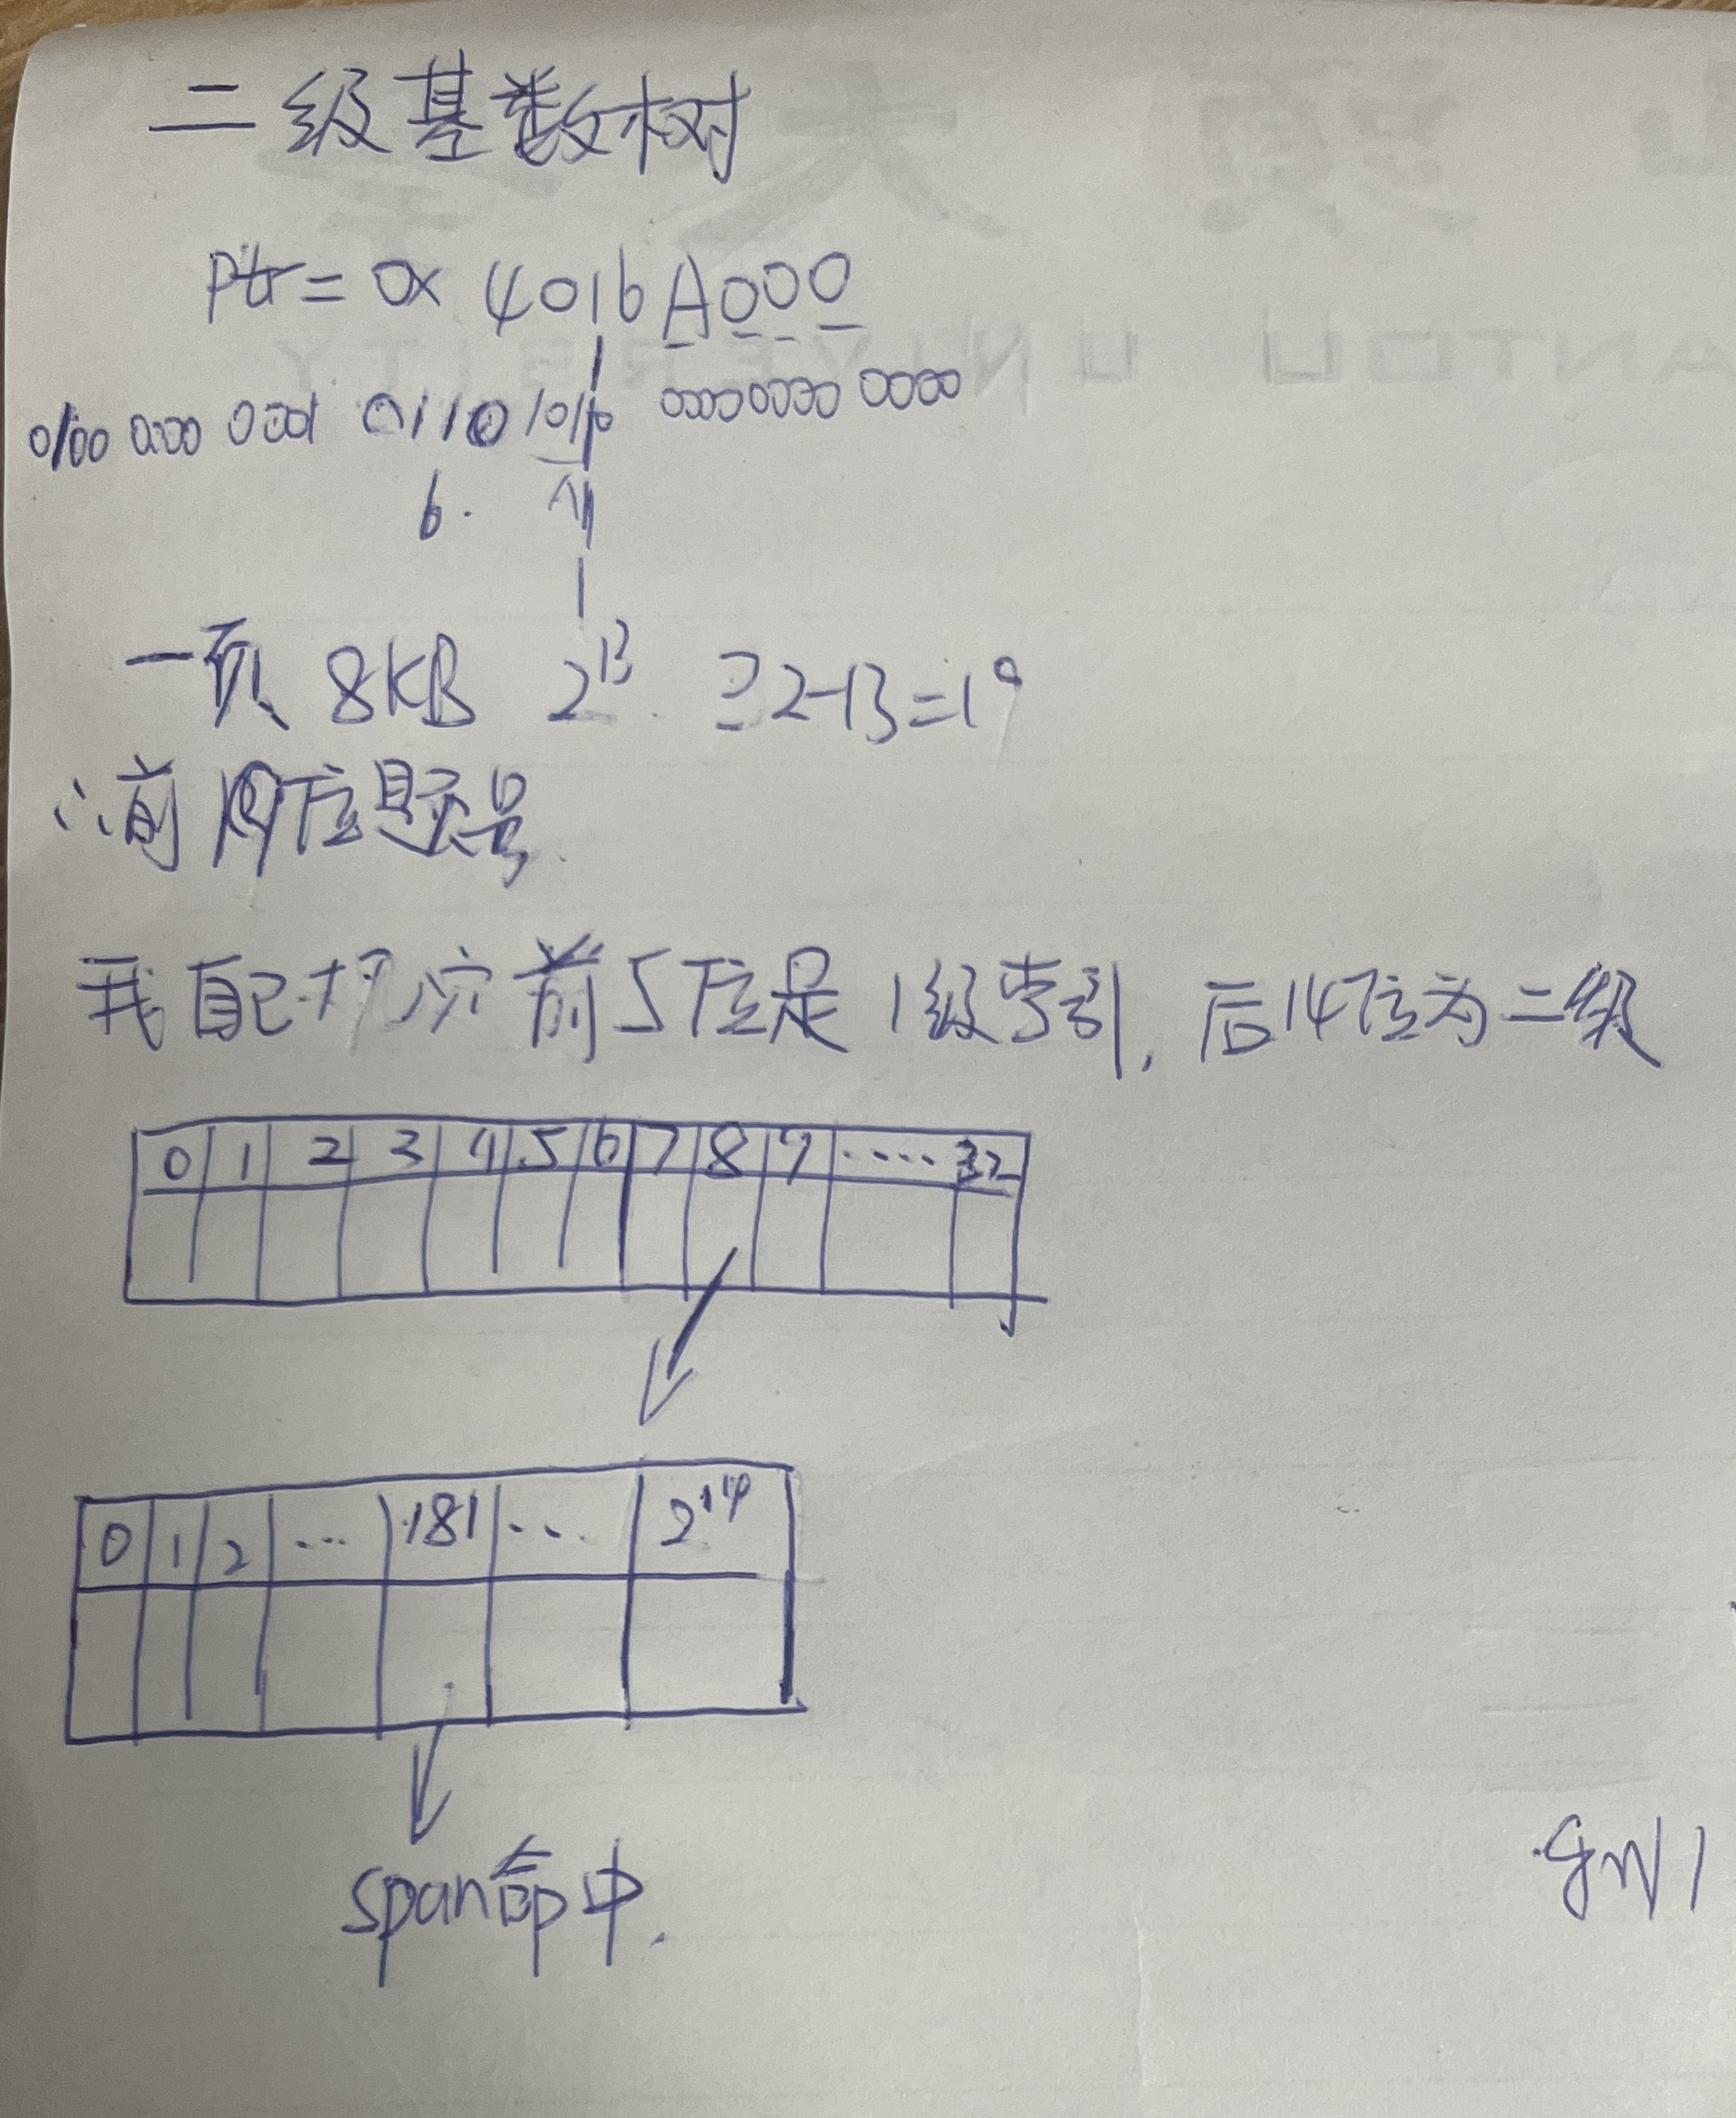 二级基数树
Ptr = 0x 4016A000
0100 0000 0001 0110 1010 0000 0000 0000
6. A
一页 8KB 2^13 32-13=19
∴前19位是页号
我自己切分前5位是1级索引, 后14位为二级
0 1 2 3 4 5 6 7 8 9 .... 32
0 1 2 ... 181 ... 2^14
span命中.